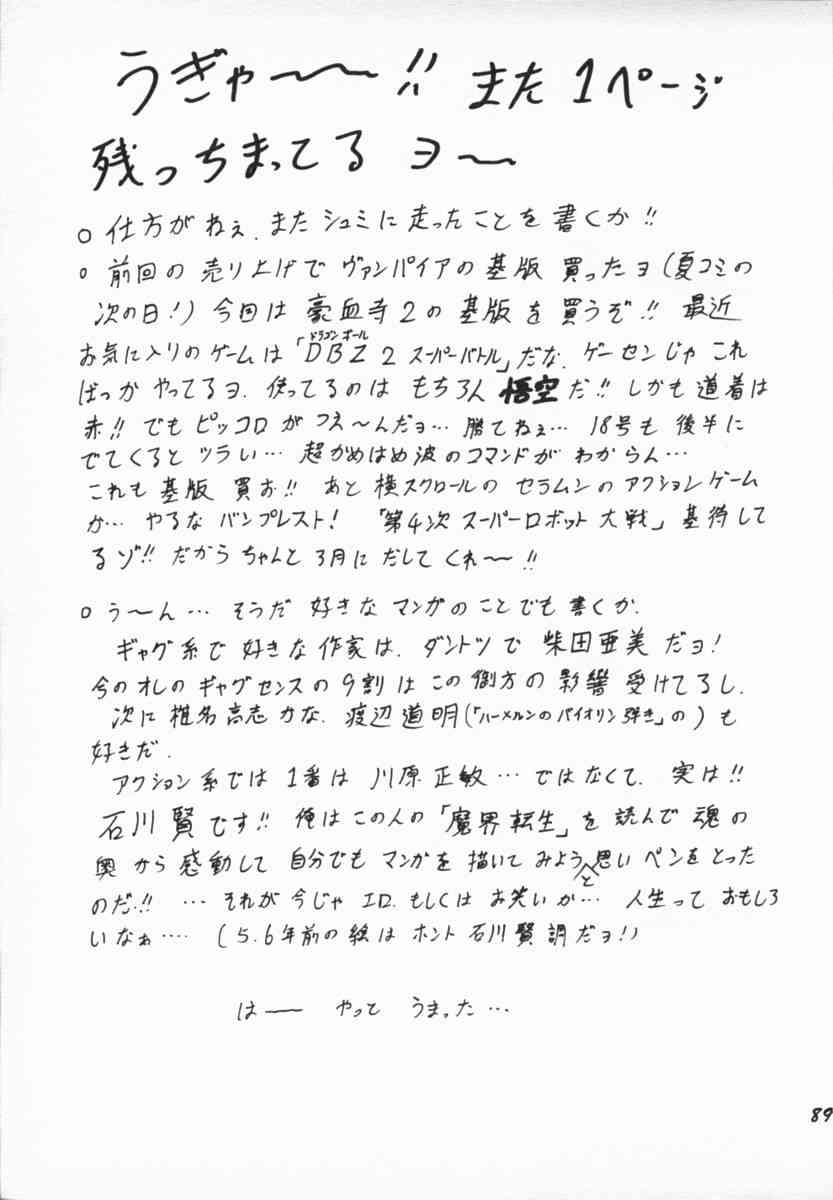 うぎゃ〜〜!! また1ページ
残っちまってるヨ〜
○ 仕方がねぇ.またシュミに走ったことを書くか!!
○ 前回の売り上げでヴァンパイアの基版買ったヨ(夏コミの
次の日!)今回は豪血寺2の基版を買うぞ!! 最近
お気に入りのゲームは「DBZ2スーパーバトル」だな.ゲーセンじゃこれ
ドラゴンボール
ばっかやってるヨ.使ってるのはもちろん悟空だ!!しかも道着は
赤!!でもピッコロがつえ〜んだョ…勝てねぇ…18号も後半に
でてくるとツラい…超かめはめ波のコマンドがわからん…
これも基版買お!! あと横スクロールのセラムンのアクションゲーム
か…やるなバンプレスト! 「第4次スーパーロボット大戦」基待して
るゾ!!だからちゃんと3月にだしてくれ〜!!
○ う〜ん…そうだ好きなマンガのことでも書くか.
ギャグ系で好きな作家は.ダントツで柴田亜美だョ!
今のオレのギャグセンスの9割はこの御方の影響受けてるし.
次に椎名高志かな.渡辺道明(「ハーメルンのバイオリン弾き」の)も
好きだ.
アクション系では1番は川原正敏…ではなくて.実は!!
石川賢です!!俺はこの人の「魔界転生」を読んで魂の
奥から感動して自分でもマンガを描いてみようと思いペンをとった
のだ!! …それが今じゃエロ.もしくはお笑いか…人生っておもしろ
いなぁ‥‥(5.6年前の絵はホント石川賢調だョ!)
は── やっと うまった…
89